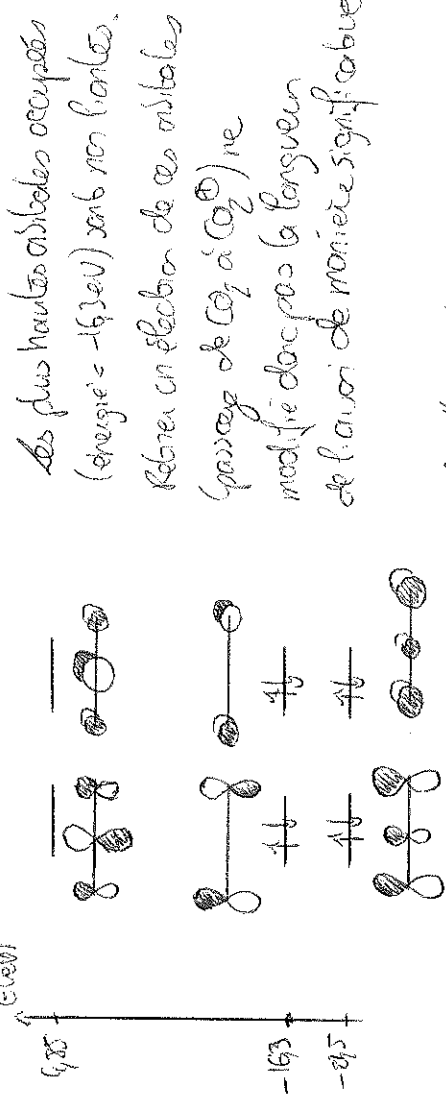 Les plus hautes orbitales occupées
(énergie = -16,3 eV) sont non liantes.
Retirer un électron de ces orbitales
(passage de CO2 à CO2⊕) ne
modifie donc pas la longueur
de liaison de manière significative
E(eV)
-16,3